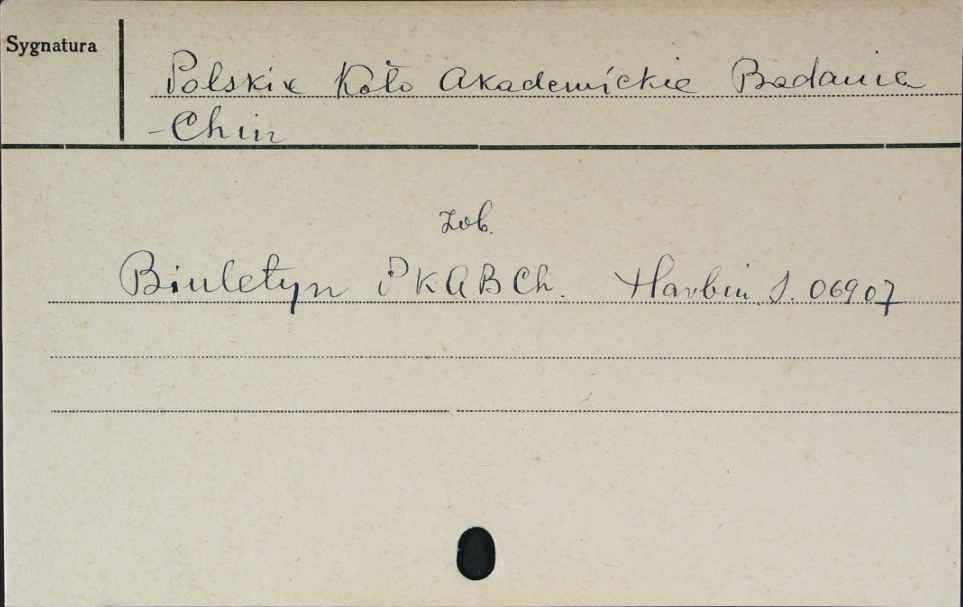 Sygnatura
Polskie Koło Akademickie Badania
-Chin
zob.
Biuletyn PKABCh. Harbin S. 06907